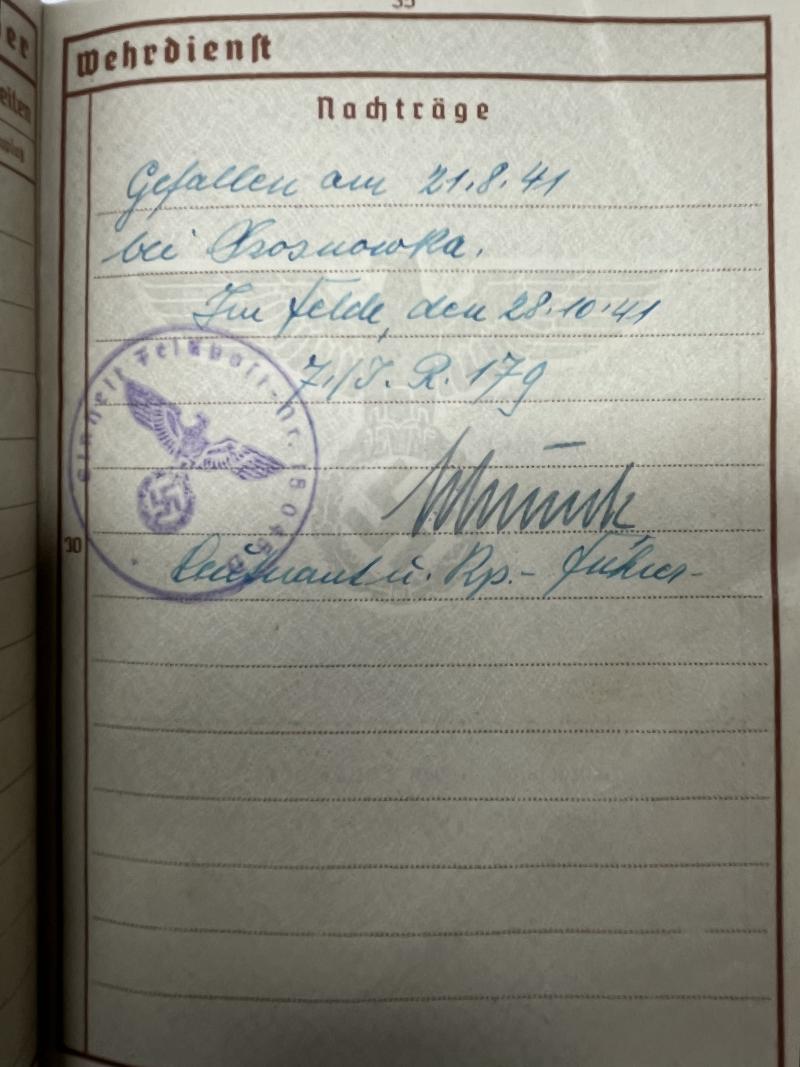 35
Wehrdienst
Nachträge
Gefallen am 21.8.41
bei
Im Felde, den 28.10.41
7./J. R. 179
Einheit Feldpost-Nr.
30
Leutnant u. Kp.-Führer